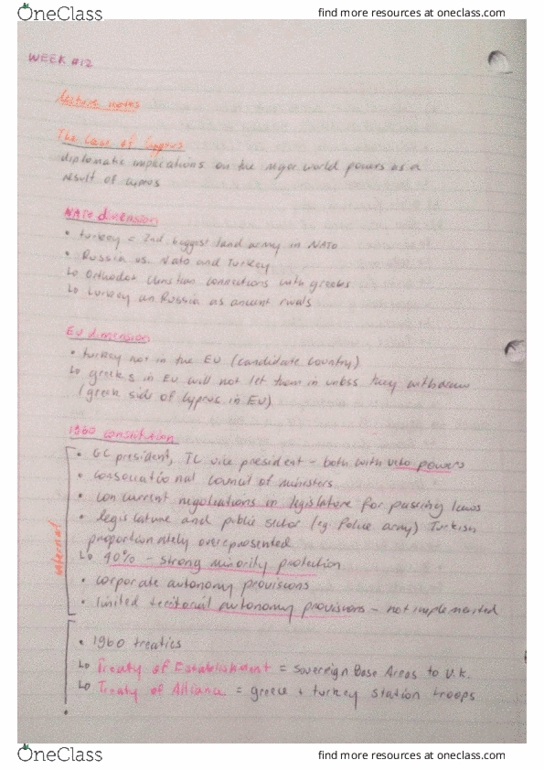 OneClass
find more resources at oneclass.com
WEEK #12
lecture notes
The Case of Cyprus
diplomatic implications on the major world powers as a
result of Cyprus
NATO dimension
• turkey = 2nd biggest land army in NATO
• Russia vs. Nato and Turkey
↳ Orthodox Christian connections with greeks
↳ Turkey an Russia as ancient rivals
EU dimension
• turkey not in the EU (candidate country)
↳ greeks in EU will not let them in unless they withdraw
(greek side of Cyprus in EU)
1960 constitution
• GC president, TC vice president - both with veto powers
• consociational council of ministers
• concurrent negotiations in legislature for passing laws
• legislature and public sector (eg. Police army) Turkish
proportionately overepresented
↳ 40% - strong minority protection
• corporate autonomy provisions
• limited territorial autonomy provisions - not implemented
internal
• 1960 treaties
↳ Treaty of Establishment = Sovereign Base Areas to U.K.
↳ Treaty of Alliance = greece + turkey station troops
•
OneClass
find more resources at oneclass.com